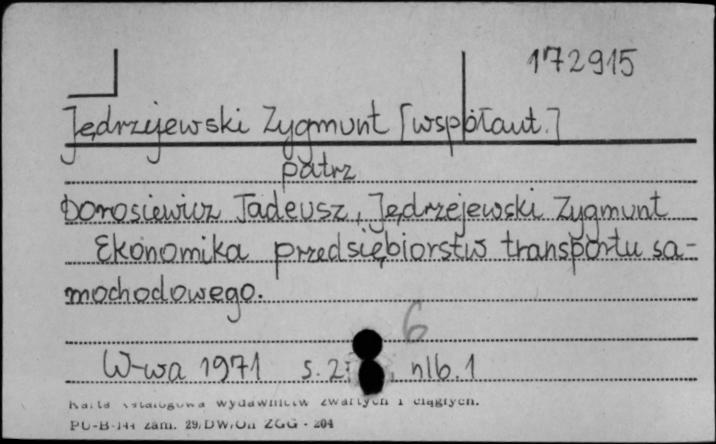 172915
Jędrzejewski Zygmunt [współaut.]
patrz
Dorosiewicz Tadeusz, Jędrzejewski Zygmunt
Ekonomika przedsiębiorstw transportu sa-
mochodowego.
6
W-wa 1971 s. 2 nlb. 1
Karta katalogowa wydawnictw zwartych i ciągłych.
PU-B-144 zam. 29/DW/Un ZGG - 204